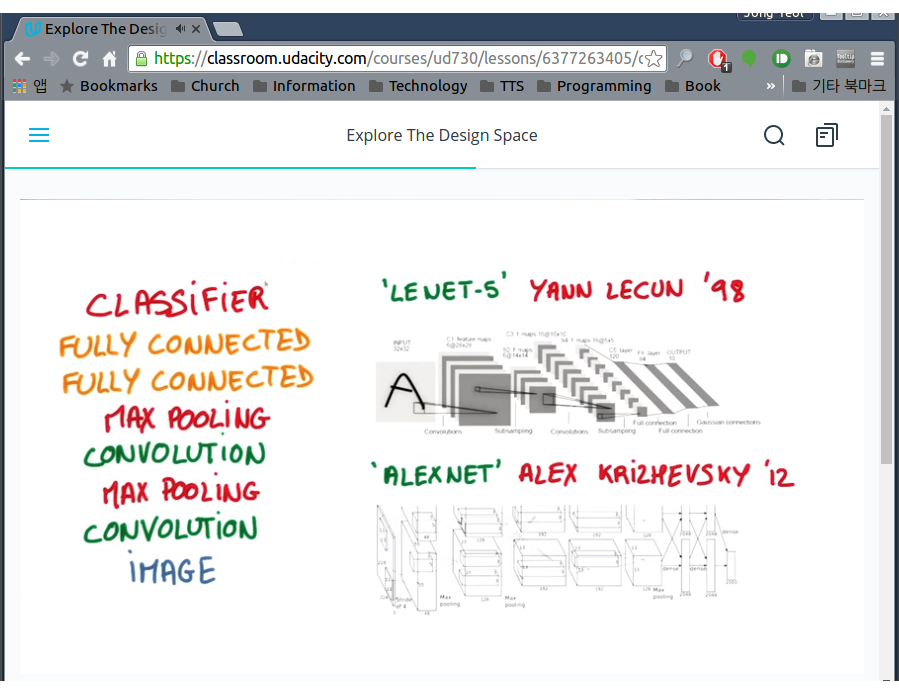 Explore The Desig
Jong Yeol
https://classroom.udacity.com/courses/ud730/lessons/6377263405/c
1
앱 Bookmarks Church Information Technology TTS Programming Book » 기타 북마크
Explore The Design Space
CLASSIFIER
FULLY CONNECTED
FULLY CONNECTED
MAX POOLING
CONVOLUTION
MAX POOLING
CONVOLUTION
IMAGE
'LENET-5' YANN LECUN '98
INPUT
32x32
C1: feature maps
6@28x28
S2: f. maps
6@14x14
C3: f. maps 16@10x10
S4: f. maps 16@5x5
C5: layer
120
F6: layer
84
OUTPUT
10
A
Convolutions Subsampling Convolutions Subsampling Full connection Full connection Gaussian connections
'ALEXNET' ALEX KRIZHEVSKY '12
Stride of 4
48
Max pooling
128
Max pooling
192
192
128
Max pooling
dense
dense
dense